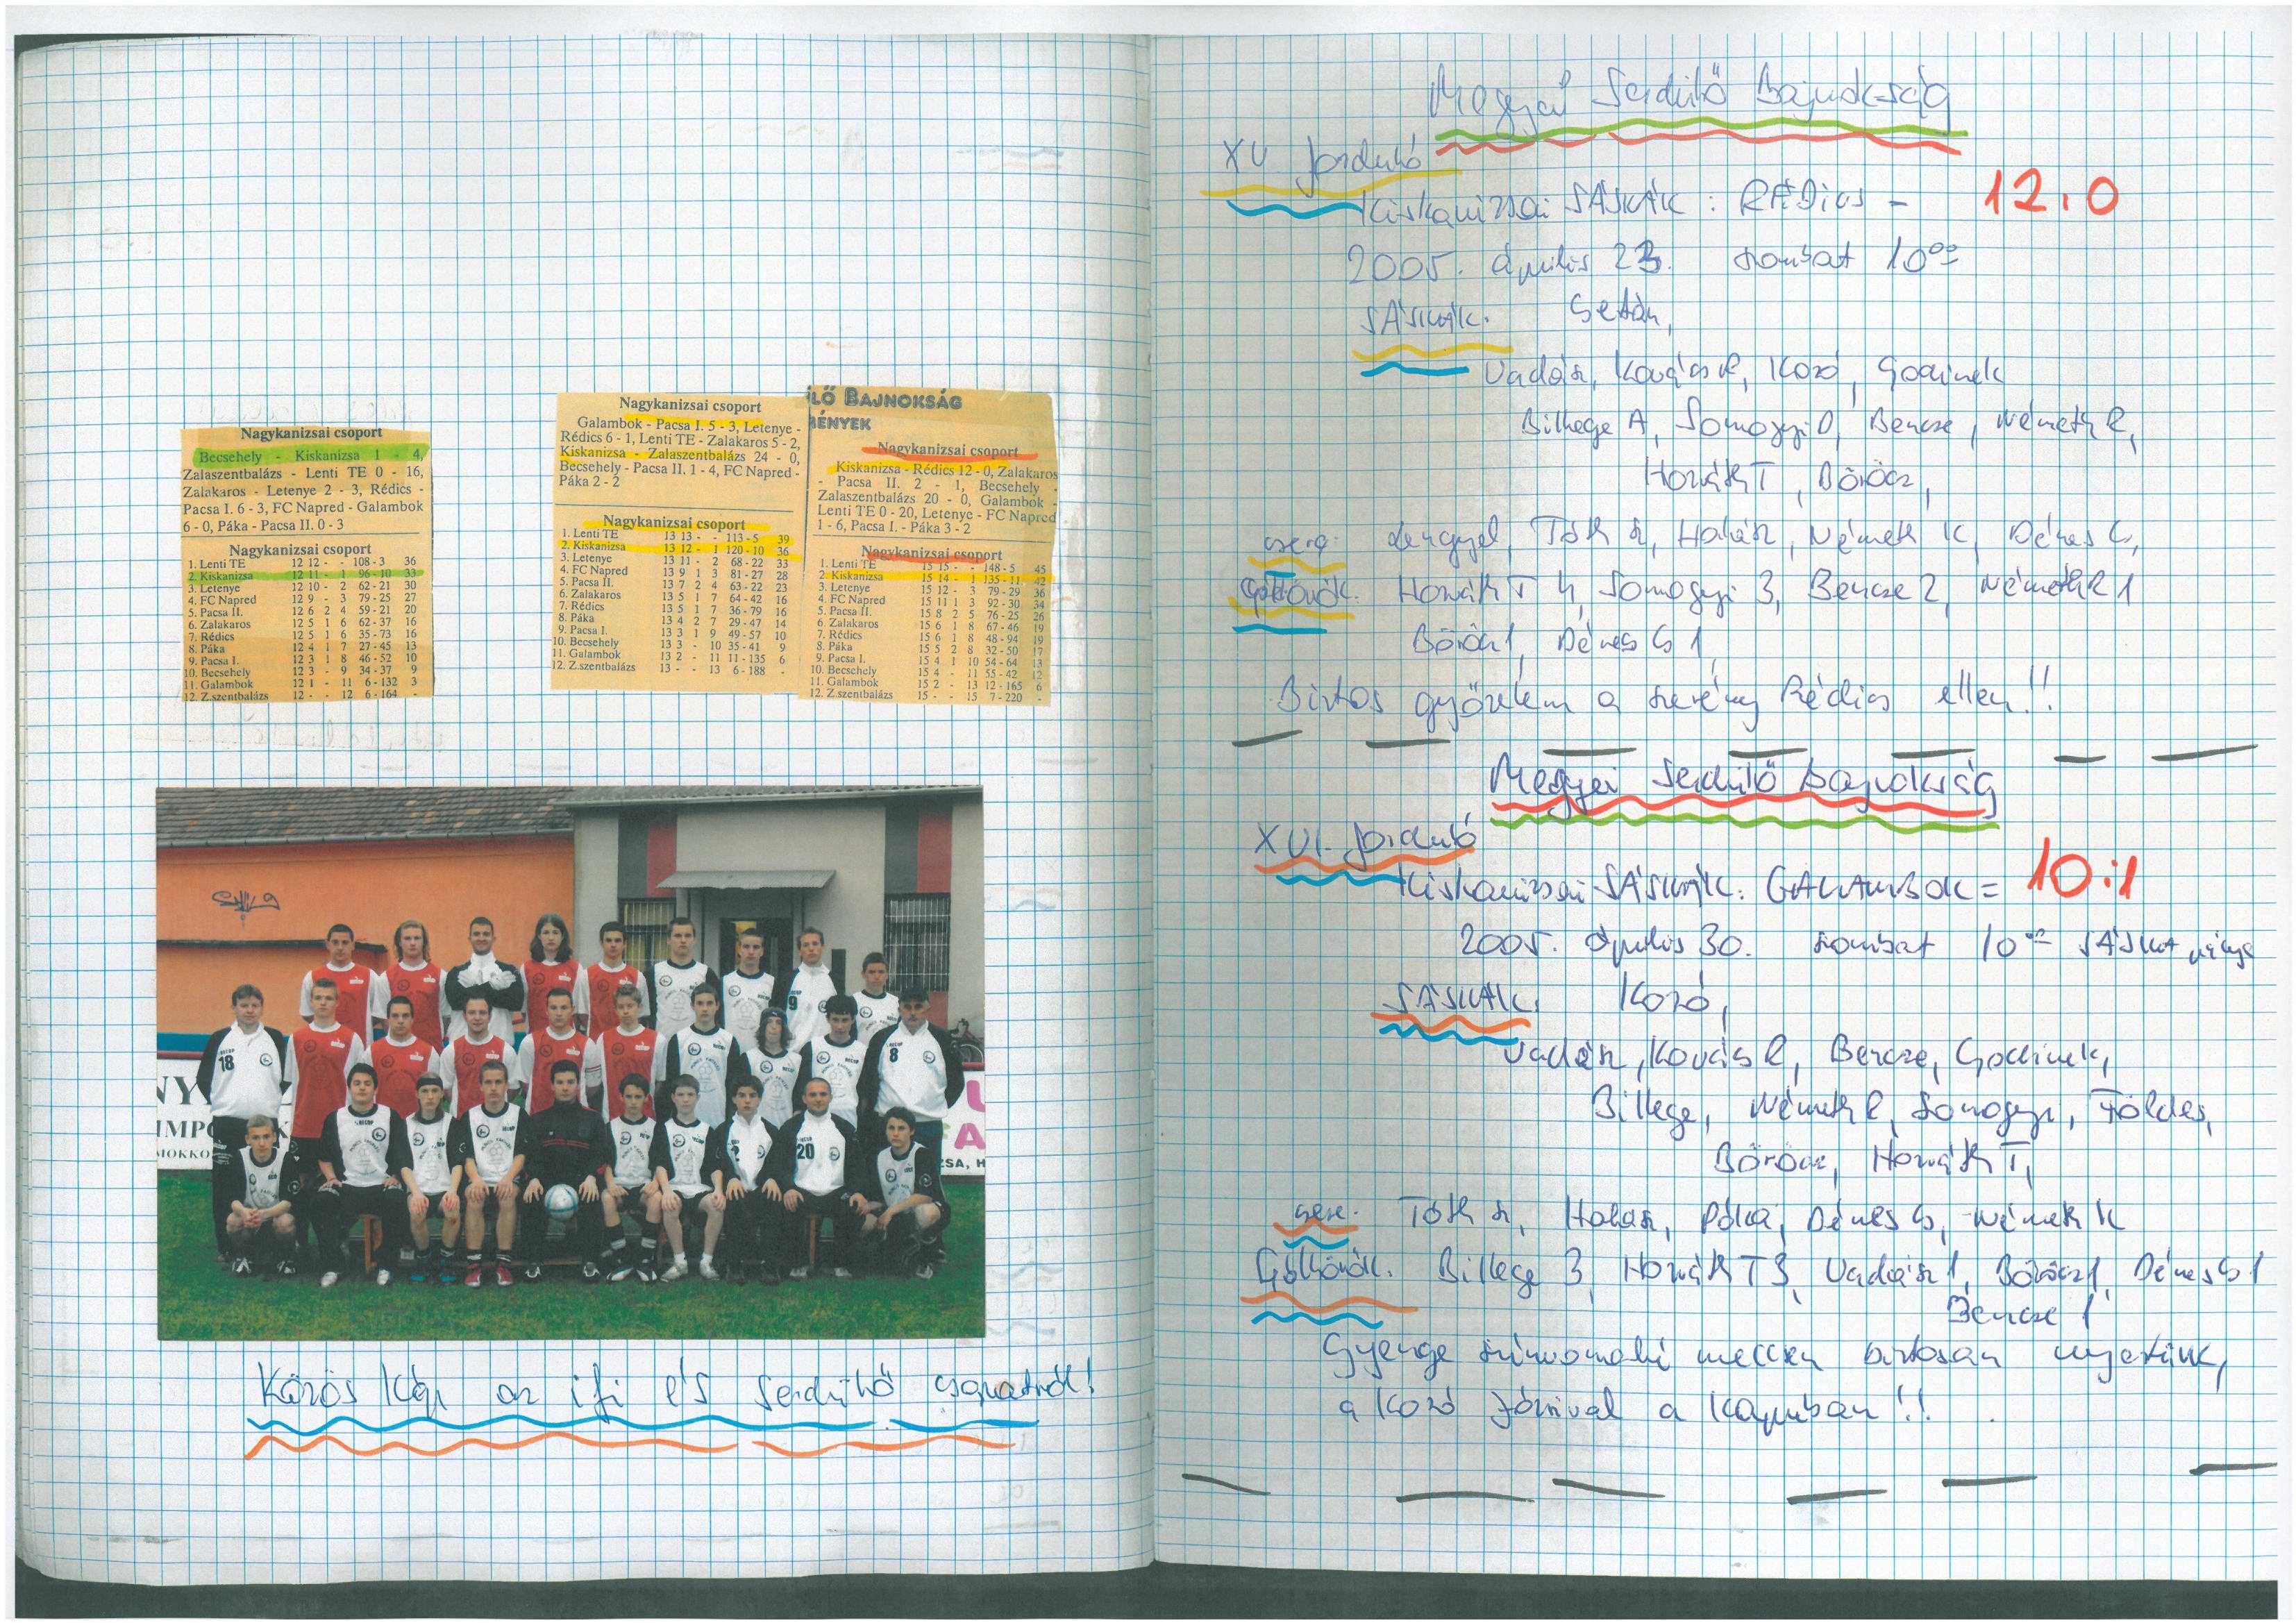 Nagykanizsai csoport
Becsehely - Kiskanizsa 1 - 4,
Zalaszentbalázs - Lenti TE 0 - 16,
Zalakaros - Letenye 2 - 3, Rédics -
Pacsa I. 6 - 3, FC Napred - Galambok
6 - 0, Páka - Pacsa II. 0 - 3
Nagykanizsai csoport
1. Lenti TE 12 12 - - 108 - 3 36
2. Kiskanizsa 12 11 - 1 96 - 10 33
3. Letenye 12 10 - 2 62 - 21 30
4. FC Napred 12 9 - 3 79 - 25 27
5. Pacsa II. 12 6 2 4 59 - 21 20
6. Zalakaros 12 5 1 6 62 - 37 16
7. Rédics 12 5 1 6 35 - 73 16
8. Páka 12 4 1 7 27 - 45 13
9. Pacsa I. 12 3 1 8 46 - 52 10
10. Becsehely 12 3 - 9 34 - 37 9
11. Galambok 12 1 - 11 6 - 132 3
12. Z.szentbalázs 12 - - 12 6 - 164 -
Nagykanizsai csoport
Galambok - Pacsa I. 5 - 3, Letenye -
Rédics 6 - 1, Lenti TE - Zalakaros 5 - 2,
Kiskanizsa - Zalaszentbalázs 24 - 0,
Becsehely - Pacsa II. 1 - 4, FC Napred -
Páka 2 - 2
Nagykanizsai csoport
1. Lenti TE 13 13 - - 113 - 5 39
2. Kiskanizsa 13 12 - 1 120 - 10 36
3. Letenye 13 11 - 2 68 - 22 33
4. FC Napred 13 9 1 3 81 - 27 28
5. Pacsa II. 13 7 2 4 63 - 22 23
6. Zalakaros 13 5 1 7 64 - 42 16
7. Rédics 13 5 1 7 36 - 79 16
8. Páka 13 4 2 7 29 - 47 14
9. Pacsa I. 13 3 1 9 49 - 57 10
10. Becsehely 13 3 - 10 35 - 41 9
11. Galambok 13 2 - 11 11 - 135 6
12. Z.szentbalázs 13 - - 13 6 - 188 -
LŐ BAJNOKSÁG
ÉNYEK
Nagykanizsai csoport
Kiskanizsa - Rédics 12 - 0, Zalakaros
- Pacsa II. 2 - 1, Becsehely -
Zalaszentbalázs 20 - 0, Galambok -
Lenti TE 0 - 20, Letenye - FC Napred
1 - 6, Pacsa I. - Páka 3 - 2
Nagykanizsai csoport
1. Lenti TE 15 15 - - 148 - 5 45
2. Kiskanizsa 15 14 - 1 135 - 11 42
3. Letenye 15 12 - 3 79 - 29 36
4. FC Napred 15 11 1 3 92 - 30 34
5. Pacsa II. 15 8 2 5 76 - 25 26
6. Zalakaros 15 6 1 8 67 - 46 19
7. Rédics 15 6 1 8 48 - 94 19
8. Páka 15 5 2 8 32 - 50 17
9. Pacsa I. 15 4 1 10 54 - 64 13
10. Becsehely 15 4 - 11 55 - 42 12
11. Galambok 15 2 - 13 12 - 165 6
12. Z.szentbalázs 15 - - 15 7 - 220 -
18
9
8
2
20
IMPO
MOKKO
ZSA, H
Közös kép az ifi és serdülő csapatról!
Megyei Serdülő Bajnokság
XV forduló
Kiskanizsai SÁSKÁK : RÉDics - 12:0
2005. április 23. szombat 10⁰⁰
SÁSKÁK.
Vadász, Kovács R, Kozó, Godinek
Billege A, Somogyi D, Bencze, Németh R,
Horváth T, Böröcz,
csere: Lengyel, Tóth Sz, Halász, Németh K, Dénes G,
Góllövők. Horváth T 4, Somogyi 3, Bencze 2, Németh R 1
Böröcz 1, Dénes G 1
Biztos győzelem a szerény Rédics ellen!!
Megyei Serdülő Bajnokság
XVI. forduló
Kiskanizsai SÁSKÁK : GALAMBOK = 10:1
2005. április 30. szombat 10⁰⁰ SÁSKA
SÁSKÁK. Kozó,
Vadász, Kovács R, Bencze, Godinek,
Billege, Németh R, Somogyi, Földes,
Böröcz, Horváth T,
csere. Tóth Sz, Halász, Pólai, Dénes G, Németh K
Góllövők. Billege 3, Horváth T 3, Vadász 1, Böröcz 1, Dénes G 1
Bencze 1
Gyenge színvonalú meccsen biztosan nyertünk,
a Kozó Józsival a kapuban!!